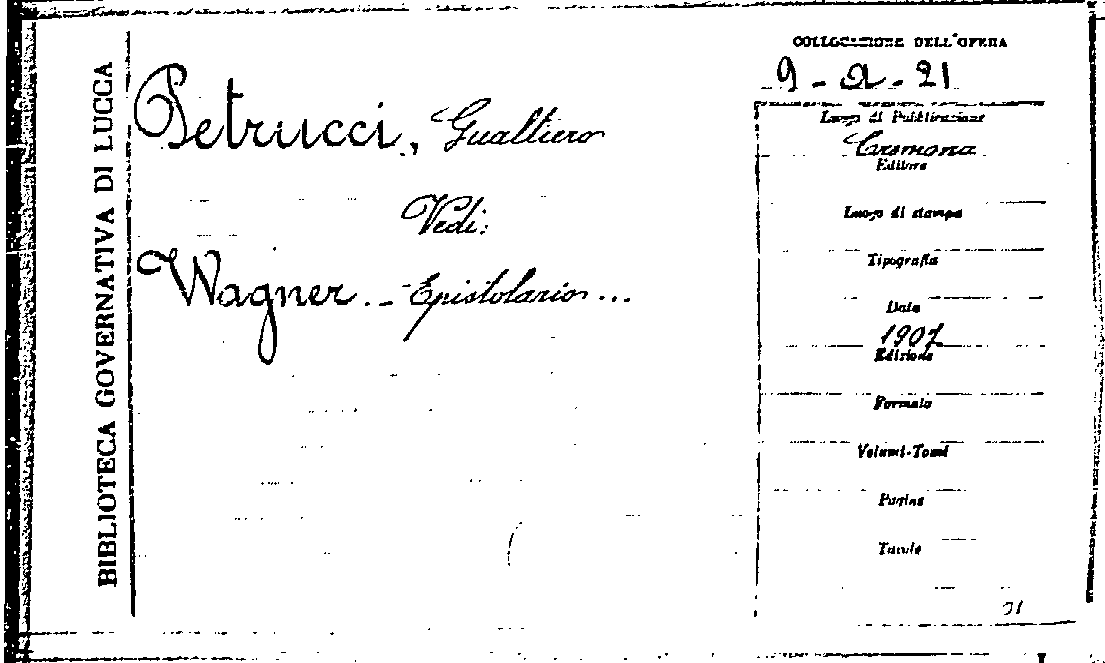 BIBLIOTECA GOVERNATIVA DI LUCCA
Petrucci, Gualtiero
Vedi:
Wagner. - Epistolario...
COLLOCAZIONE DELL'OPERA
9-a-21
Luogo di Pubblicazione
Cremona
Editore
Luogo di stampa
Tipografia
Data
1907
Edizione
Formato
Volumi-Tomi
Pagine
Tavole